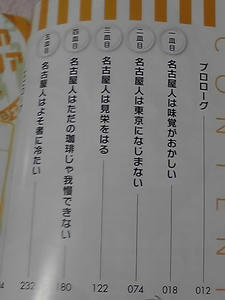 CONTENT
プロローグ 012
一皿目 名古屋人は味覚がおかしい 018
二皿目 名古屋人は東京になじまない 074
三皿目 名古屋人は見栄をはる 122
四皿目 名古屋人はただの珈琲じゃ我慢できない 180
五皿目 名古屋人はよそ者に冷たい 232